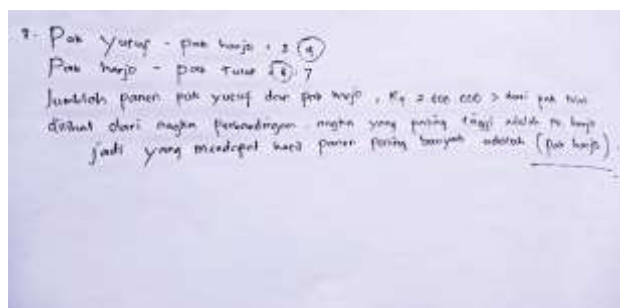 Pak Yusuf - pak harjo : 3 4
Pak harjo - pak Tulus 8 : 7
Jumblah panen pak yusuf dan pak harjo , R 2 600 000 > dari pak
dilihat dari angka perbandingan angka yang paling tinggi adalah pk harjo
jadi yang mendapat hasil panen paling banyak adalah (pak harjo)